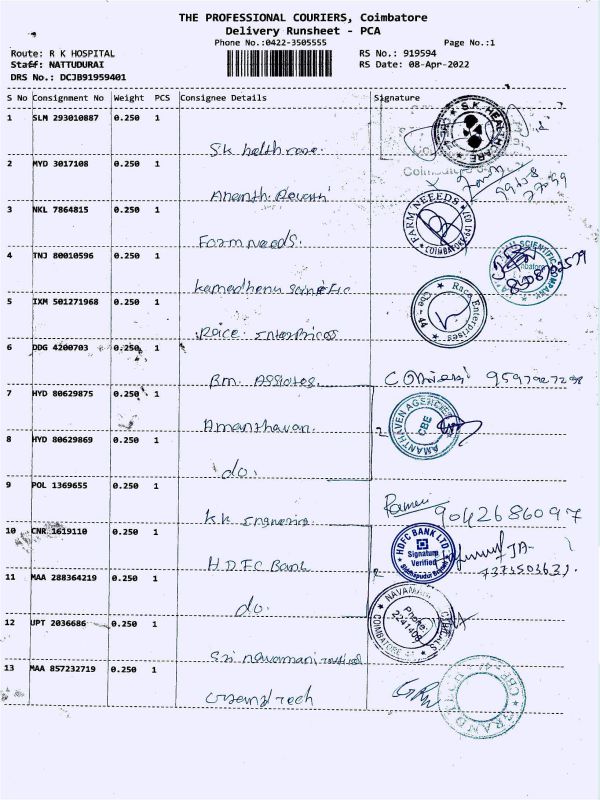 THE PROFESSIONAL COURIERS, Coimbatore
Delivery Runsheet - PCA
Phone No.:0422-3505555
Page No.:1
Route: R K HOSPITAL
RS No.: 919594
Staff: NATTUDURAI
RS Date: 08-Apr-2022
DRS No.: DCJB91959401
S No Consignment No Weight PCS Consignee Details Signature
1 SLM 293010887 0.250 1
S.K HEALTH CARE
S.K health care.
2 MYD 3017108 0.250 1
Ananth
3 NKL 7864815 0.250 1
FARM NEEEDS
COIMBATORE
Farm needs.
4 TNJ 80010596 0.250 1
SCIENTIFIC COMPANY
Kamadhenu
5 IXM 501271968 0.250 1
Race Enterprises
Cbe - 44
Race Enterprices
6 DDG 4200703 0.250 1
B.M. Assiotes.
9597927298
7 HYD 80629875 0.250 1
AMANTHAVEN AGENCIES
CBE
Amanthavan.
8 HYD 80629869 0.250 1
do.
9 POL 1369655 0.250 1
K.K
9042686097
10 CNR 1619110 0.250 1
HDFC BANK LTD
Signature
Verified
H.D.F.C Bank
11 MAA 288364219 0.250 1
do.
12 UPT 2036686 0.250 1
Phone:
COIMBATORE
Sri navamani
13 MAA 857232719 0.250 1
Grand Tech
GRAND